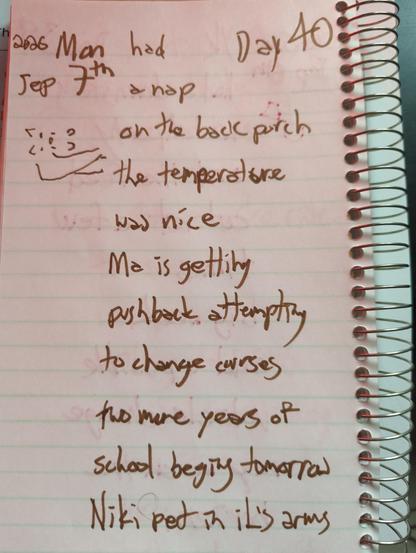 2026 Mon had Day 40
Sep 7th a nap
on the back porch
the temperature
was nice
Ma is getting
pushback attempting
to change courses
two more years of
school begins tomorrow
Niki pet in iL's arms